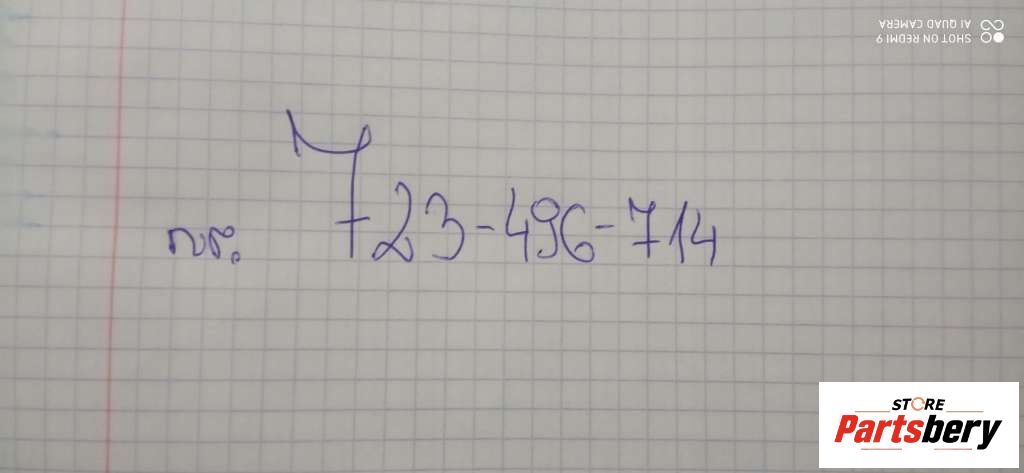 SHOT ON REDMI 9
AI QUAD CAMERA
723-496-714
STORE
Partsbery